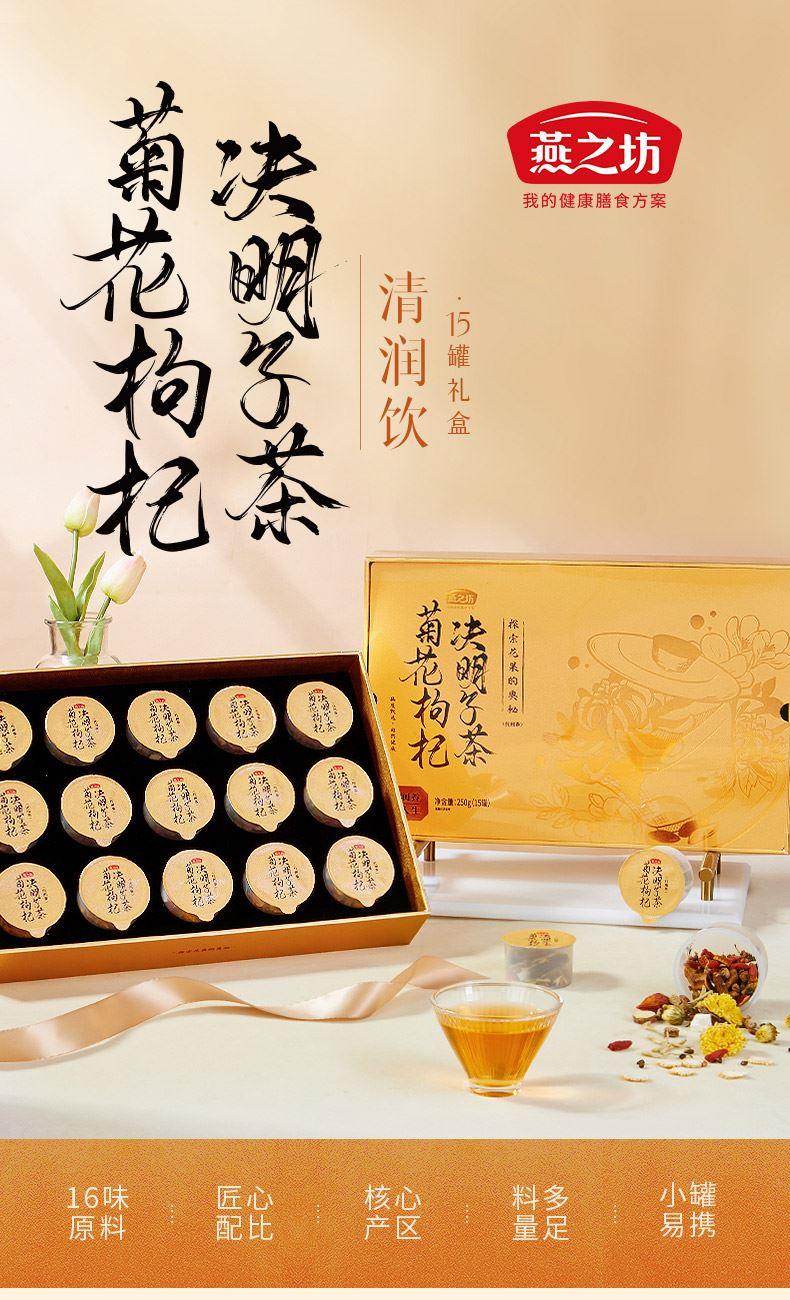 菊花枸杞
决明子茶
清润饮
·15罐礼盒
燕之坊
我的健康膳食方案
燕之坊
菊花枸杞
决明子茶
探索花果的奥秘
净含量:250g(15罐)
菊花枸杞
决明子茶
16味
原料
匠心
配比
核心
产区
料多
量足
小罐
易携